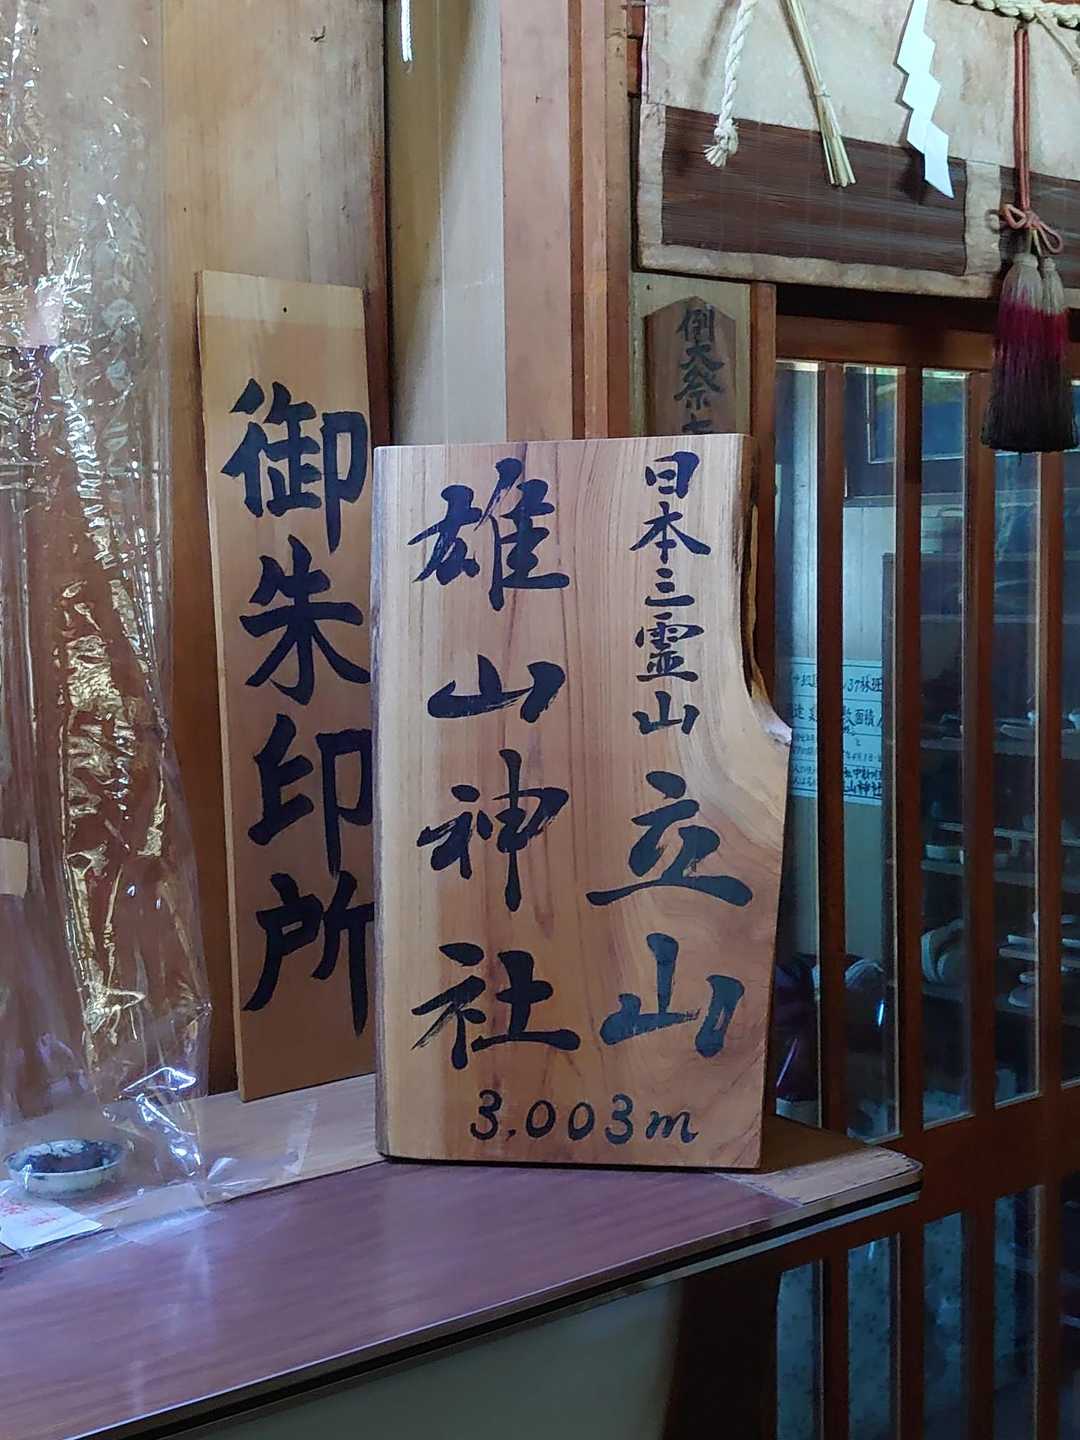 日本三霊山
立山
雄山神社
3.003m
御朱印所
例大祭